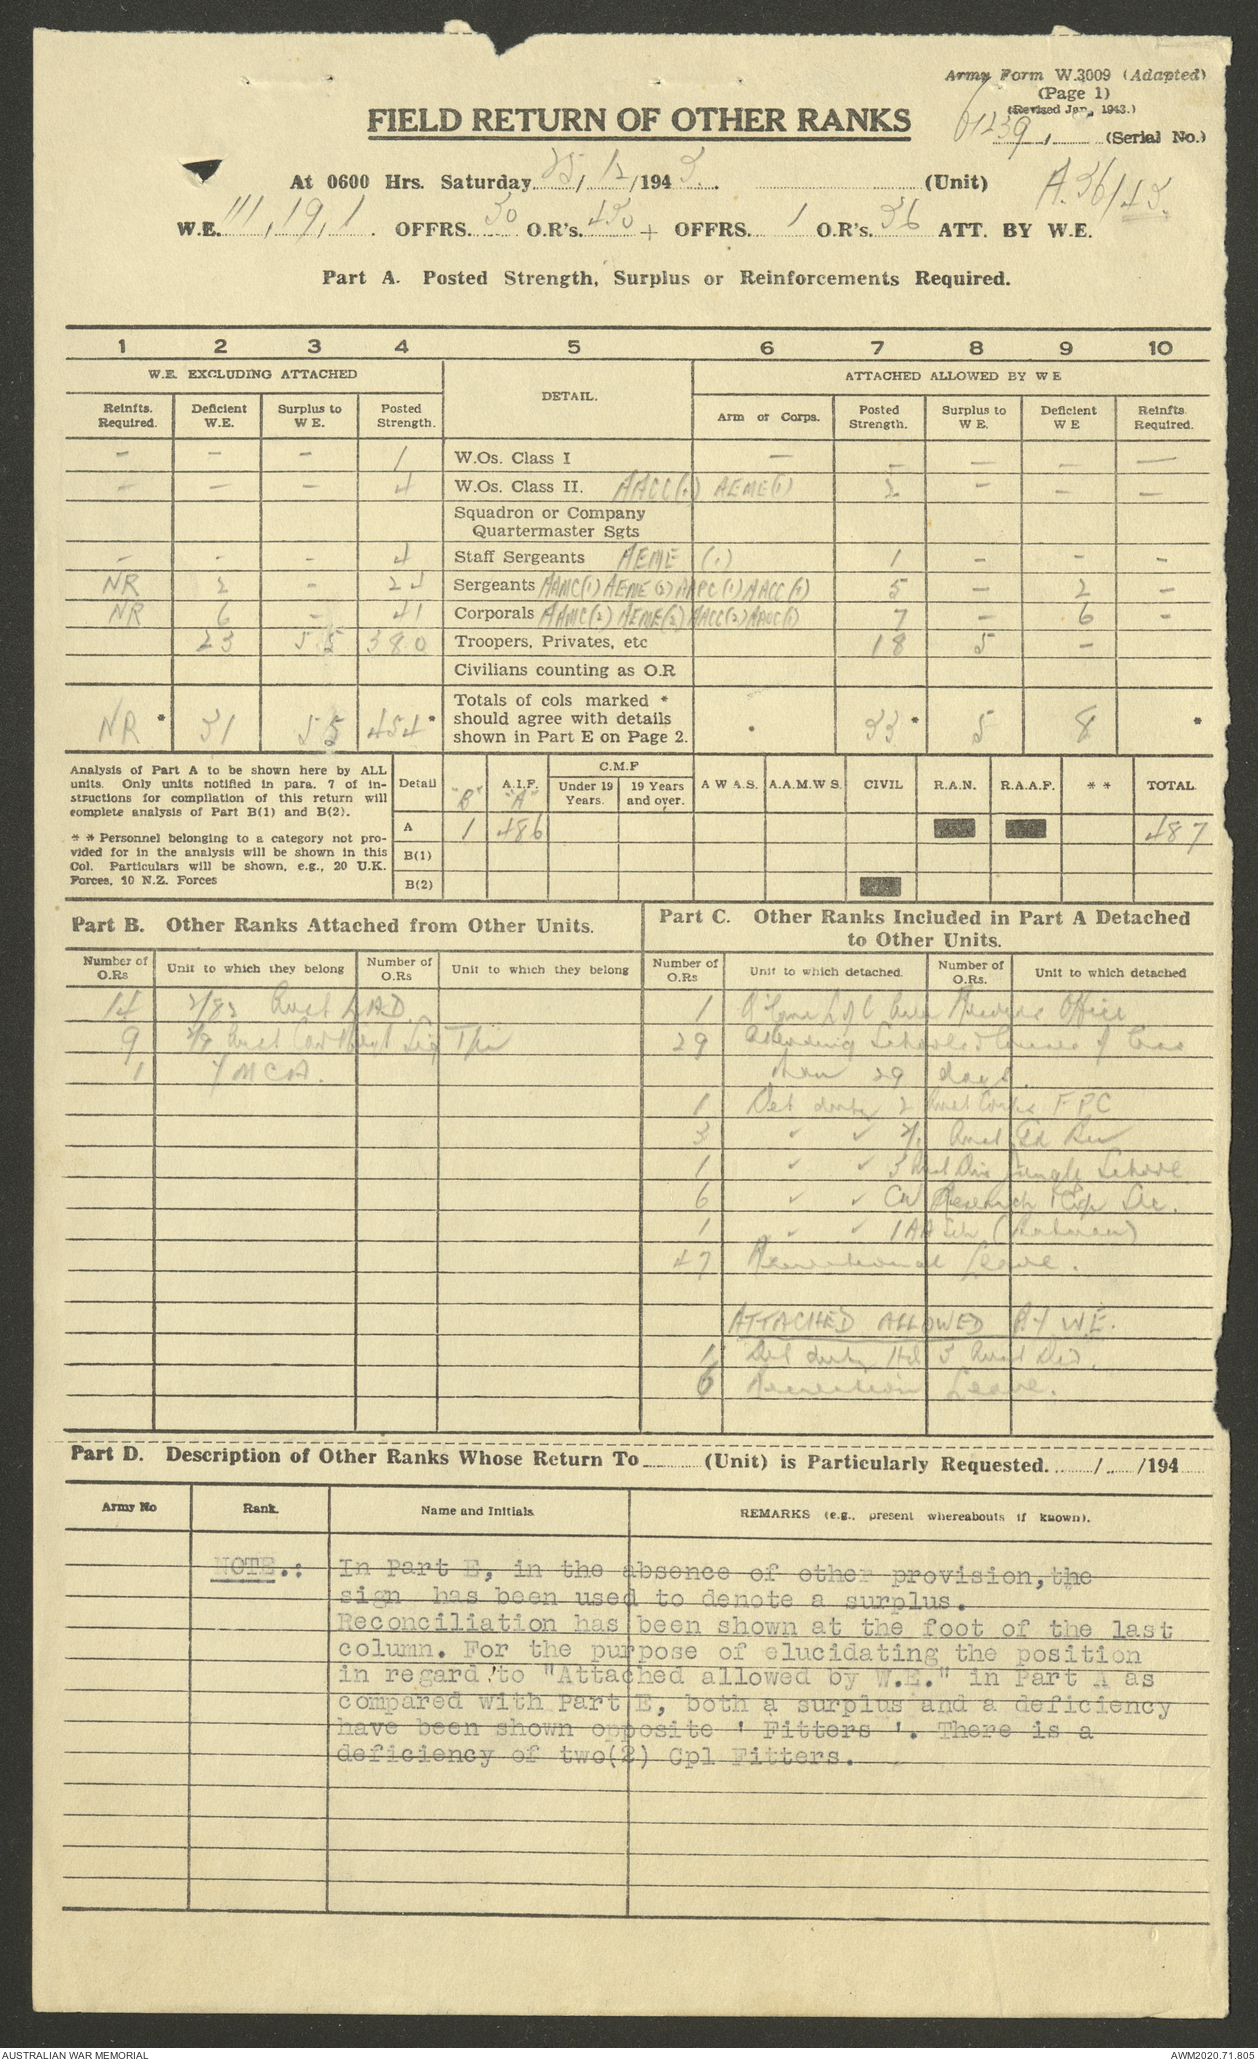 Army Form W.3009 (Adapted)
(Page 1)
(Revised Jan, 1943.)
(Serial No.)
FIELD RETURN OF OTHER RANKS
At 0600 Hrs. Saturday 25/12/1943. (Unit)
A.36/43.
W.E. 111,19,1. OFFRS. 30 O.R's. 430 + OFFRS. 1 O.R's. 36 ATT. BY W.E.
Part A. Posted Strength, Surplus or Reinforcements Required.
1 2 3 4 5 6 7 8 9 10
W.E. EXCLUDING ATTACHED DETAIL. ATTACHED ALLOWED BY W E
Reinfts. Required. Deficient W.E. Surplus to W E. Posted Strength. Arm or Corps. Posted Strength. Surplus to W E. Deficient W E Reinfts. Required.
– – – 1 W.Os. Class I – – – – –
– – – 4 W.Os. Class II. AACC(1) AEME(1) 2 – – –
Squadron or Company
Quartermaster Sgts
– – – 4 Staff Sergeants AEME (1) 1 – – –
NR 2 – 24 Sergeants AAMC(1) AEME(2) AAPC(1) AACC(1) 5 – 2 –
NR 6 – 41 Corporals AAMC(2) AEME(2) AACC(2) AAOC(1) 7 – 6 –
23 55 380 Troopers, Privates, etc 18 5 –
Civilians counting as O.R
Totals of cols marked *
should agree with details
shown in Part E on Page 2.
NR * 31 55 454 * 33 * 5 8 *
Analysis of Part A to be shown here by ALL
units. Only units notified in para. 7 of in-
structions for compilation of this return will
complete analysis of Part B(1) and B(2).
* * Personnel belonging to a category not pro-
vided for in the analysis will be shown in this
Col. Particulars will be shown, e.g., 20 U.K.
Forces, 10 N.Z. Forces
Detail "B" A.I.F. "A" C.M.F Under 19 Years. 19 Years and over. A W A S. A.A.M.W S. CIVIL R.A.N. R.A.A.F. * * TOTAL
A 1 486 487
B(1)
B(2)
Part B. Other Ranks Attached from Other Units.
Number of O.Rs Unit to which they belong Number of O.Rs Unit to which they belong
14 2/82 Aust L.A.D.
9 2/9 Aust Cav Regt Sig Tp
1 YMCA.
Part C. Other Ranks Included in Part A Detached
to Other Units.
Number of O.Rs Unit to which detached. Number of O.Rs. Unit to which detached
1 L of C Area Records Office
29 Attending Schools & Courses of less
than 29 days.
1 Det duty 2 Aust Corps FPC
3 ✓ ✓ 2/1 Aust
1 ✓ ✓ 3 Aust Div Jungle School
6 ✓ ✓ CW Research & Exp Sec.
1 ✓ ✓ 1 AA
47 Recreational Leave.
ATTACHED ALLOWED BY W.E.
1 Det duty HQ 3 Aust Div.
6 Recreation Leave.
Part D. Description of Other Ranks Whose Return To (Unit) is Particularly Requested. / /194
Army No Rank. Name and Initials REMARKS (e.g., present whereabouts if known).
NOTE.: In Part E, in the absence of other provision, the
sign has been used to denote a surplus.
Reconciliation has been shown at the foot of the last
column. For the purpose of elucidating the position
in regard to "Attached allowed by W.E." in Part A as
compared with Part E, both a surplus and a deficiency
have been shown opposite ' Fitters '. There is a
deficiency of two(2) Cpl Fitters.
AUSTRALIAN WAR MEMORIAL
AWM2020.71.805